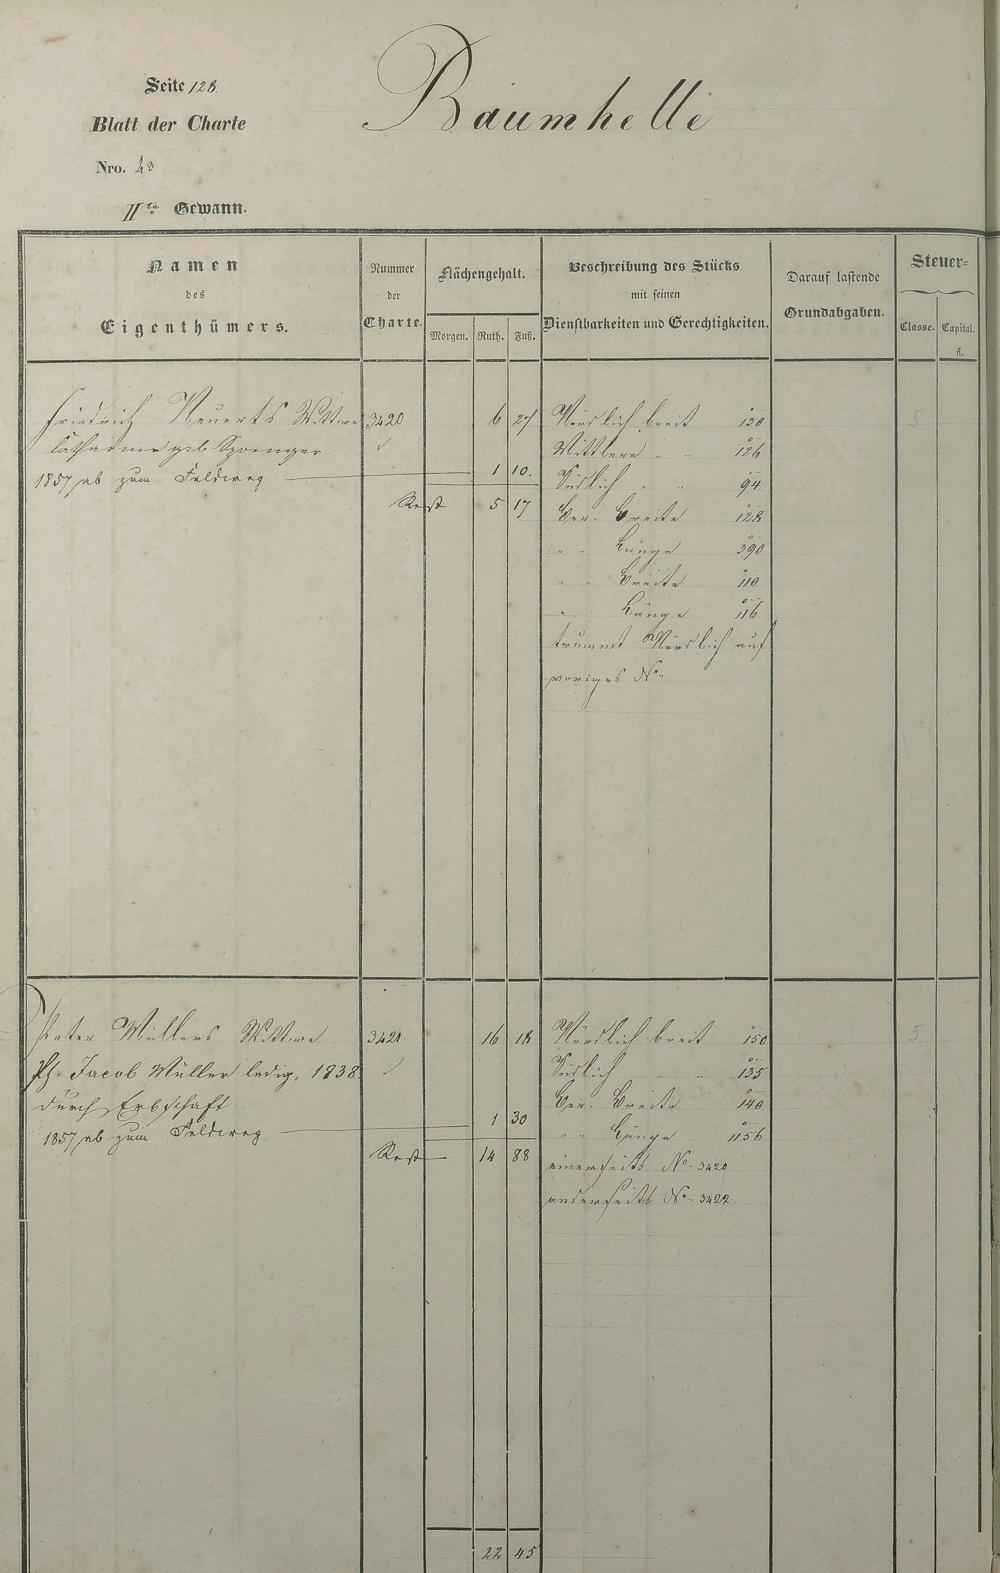 Seite 128.
Baumhelle
Blatt der Charte
Nro. 48
IIte Gewann.
Namen des Eigenthümers.
Nummer der Charte.
Flächengehalt.
Morgen. Ruth. Fuß.
Beschreibung des Stücks mit seinen Dienstbarkeiten und Gerechtigkeiten.
Darauf lastende Grundabgaben.
Steuer=
Classe. Capital. fl.
Friedrich Neuerts Wittwe 3420 6 27 Nördlich breit 130 5
Catharina geb. Sprenger Mittlere " " 126
1857 ab zum Feldweg 1 10. Südlich " " 94
Rest 5 17 Ger. Breite 128
" " Länge 390
" " Breite 110
" Länge 116
trummt Nördlich auf
voriges No.
Peter Müllers Wittwe 3421 16 18 Nördlich breit 150 5
Ph. Jacob Müller ledig, 1838. Südlich " " 135
durch Erbschaft Ger. Breite 140
1857 ab zum Feldweg 1 30 " " Länge 1156
Rest 14 88 einerseits No. 3420
anderseits No. 3422
22 45